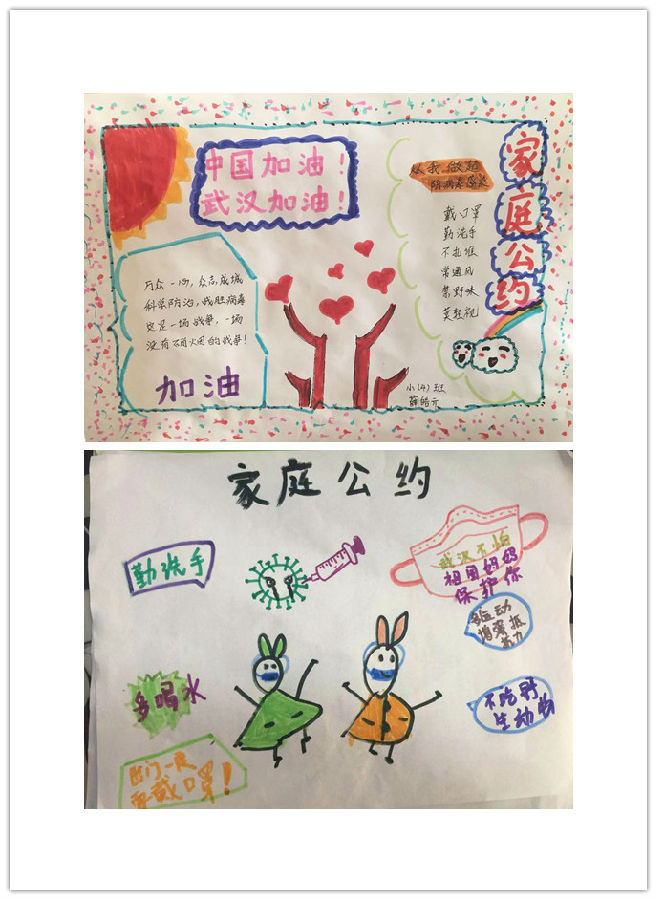 中国加油！
武汉加油！
家庭公约
从我做起
防病毒感染
戴口罩
勤洗手
不扎堆
常通风
禁野味
莫轻视
万众一心，众志成城
科学防治，战胜病毒
这是一场战争，一场
没有硝烟的战争！
加油
小(4)班
薛皓元
家庭公约
勤洗手
武汉不怕
祖国妈妈
保护你
多运动
增强抵
抗力
多喝水
不吃野
生动物
出门一定
要戴口罩！